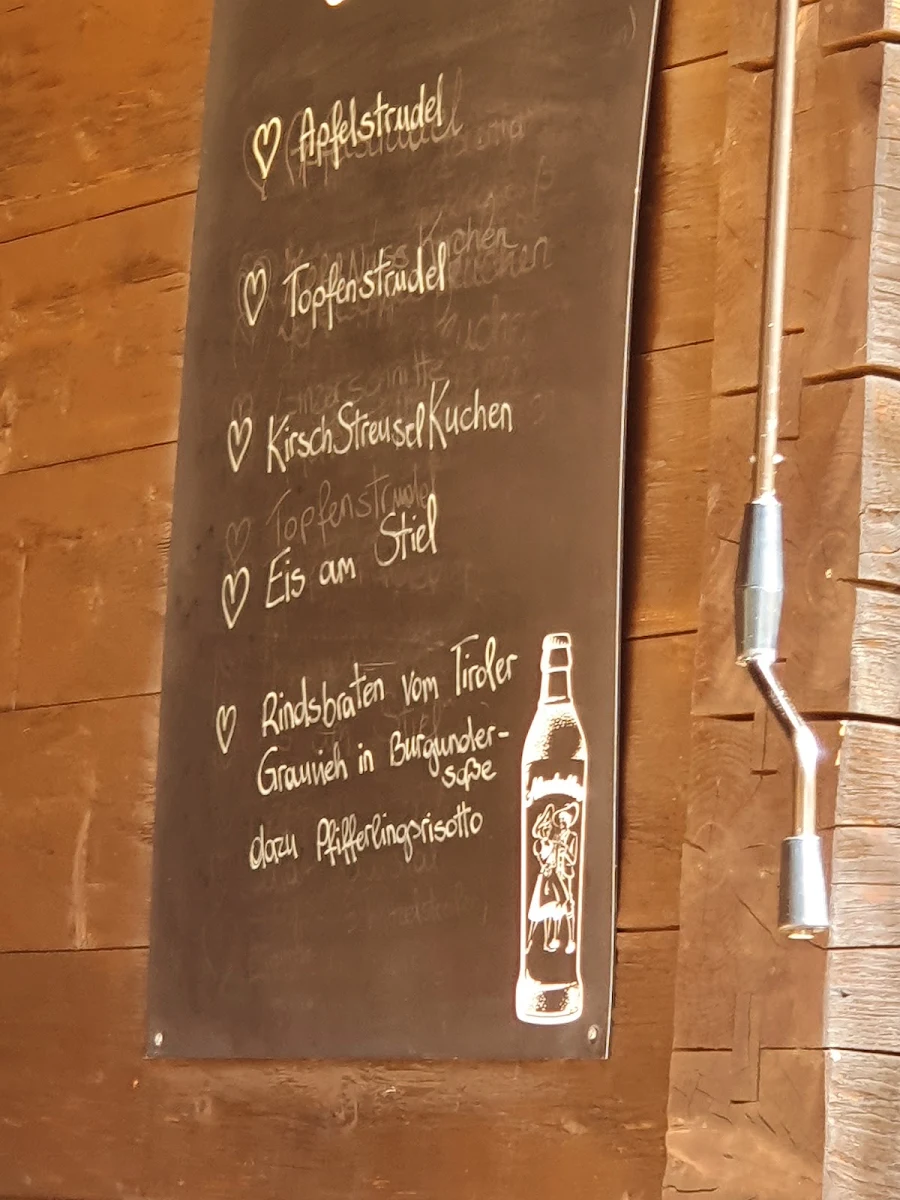 Apfelstrudel
Topfenstrudel
KirschStreuselKuchen
Topfenstrudel
Eis am Stiel
Rindsbraten vom Tiroler
Grauvieh in Burgunder-
soße
dazu Pfifferlingsrisotto